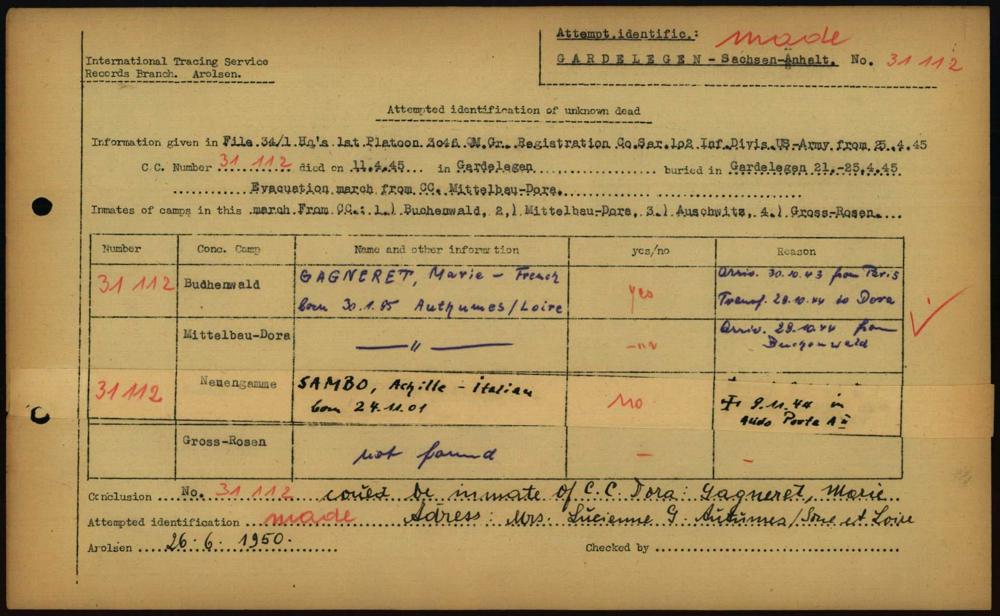 Attempt.identific.: made
International Tracing Service
Records Branch. Arolsen.
GARDELEGEN - Sachsen-Anhalt. No. 31 112
Attempted identification of unknown dead
Information given in File 34/1 Hq's 1st Platoon 3046 QM.Gr. Registration Co.Sar.102 Inf.Divis.US-Army from 25.4.45
C.C. Number 31 112 died on 11.4.45 in Gardelegen buried in Gardelegen 21.-25.4.45
Evacuation march from CC. Mittelbau-Dora.
Inmates of camps in this march From CC.: 1.) Buchenwald, 2.) Mittelbau-Dora, 3.) Auschwitz, 4.) Gross-Rosen.
Number Conc. Camp Name and other information yes/no Reason
31 112 Budhenwald GAGNERET, Marie - French yes Arriv. 30.10.43 from Paris
born 30.1.95 Authumes/Loire Transf. 28.10.44 to Dora
Mittelbau-Dora — " — — " — Arriv. 28.10.44 from
Buchenwald
31 112 Neuengamme SAMBO, Achille - italian no 9.11.44 in
born 24.11.01 Porta
Gross-Rosen not found - -
Conclusion No. 31 112 could be inmate of C.C. Dora: Gagneret, Marie
Attempted identification made Adress: Mrs. Lucienne G. Autumes/Sone et Loire
Arolsen 26.6.1950. Checked by